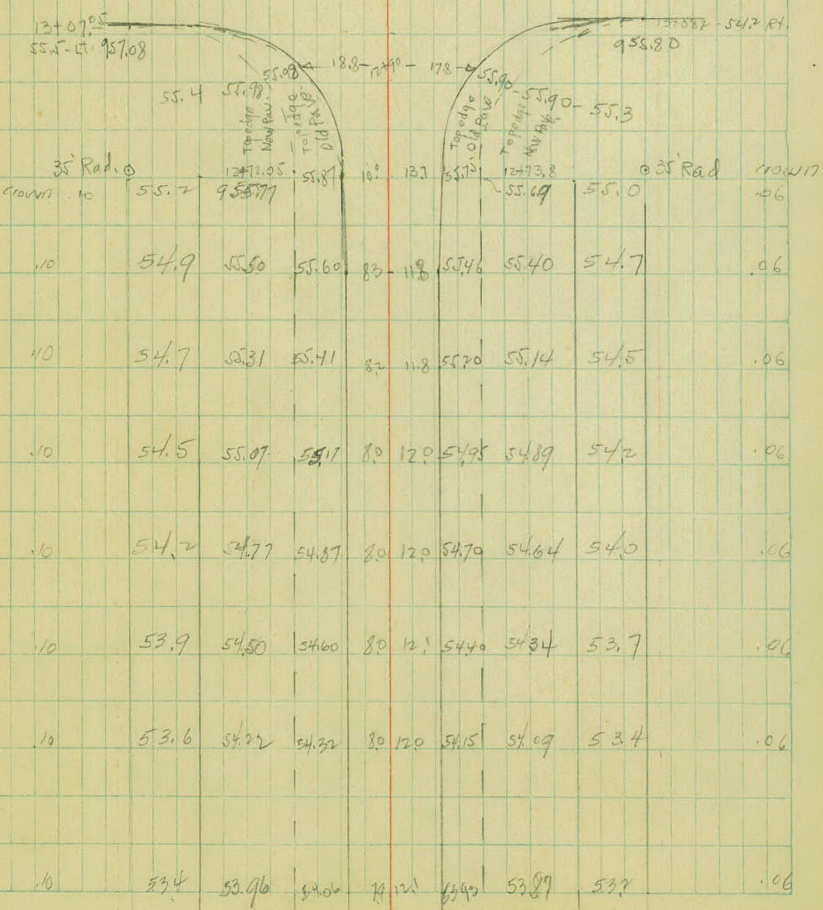 13+07.05
55.5-Lt. 957.08
54.2 Rt.
955.80
18.8 - 12+90 - 17.8
55.4 55.98 55.08 55.90 55.90 - 55.3
Top edge New Pav. Top edge Old Pave. Top edge Old Pave. Top edge New Pav.
35' Rad. 12+72.05 55.87 10.0 13.7 55.75 12+73.8 35' Rad crown
crown .10 55.2 955.77 55.69 55.0 .06
.10 54.9 55.50 55.60 8.3 - 11.8 55.46 55.40 54.7 .06
.10 54.7 55.31 55.41 8.2 11.8 55.20 55.14 54.5 .06
.10 54.5 55.07 55.17 8.0 12.0 54.95 54.89 54.2 .06
.10 54.2 54.77 54.87 8.0 12.0 54.70 54.64 54.0 .06
.10 53.9 54.50 54.60 8.0 12.1 54.40 54.34 53.7 .06
.10 53.6 54.22 54.32 8.0 12.0 54.15 54.09 53.4 .06
.10 53.4 53.96 54.06 7.9 12.1 53.93 53.87 53.2 .06